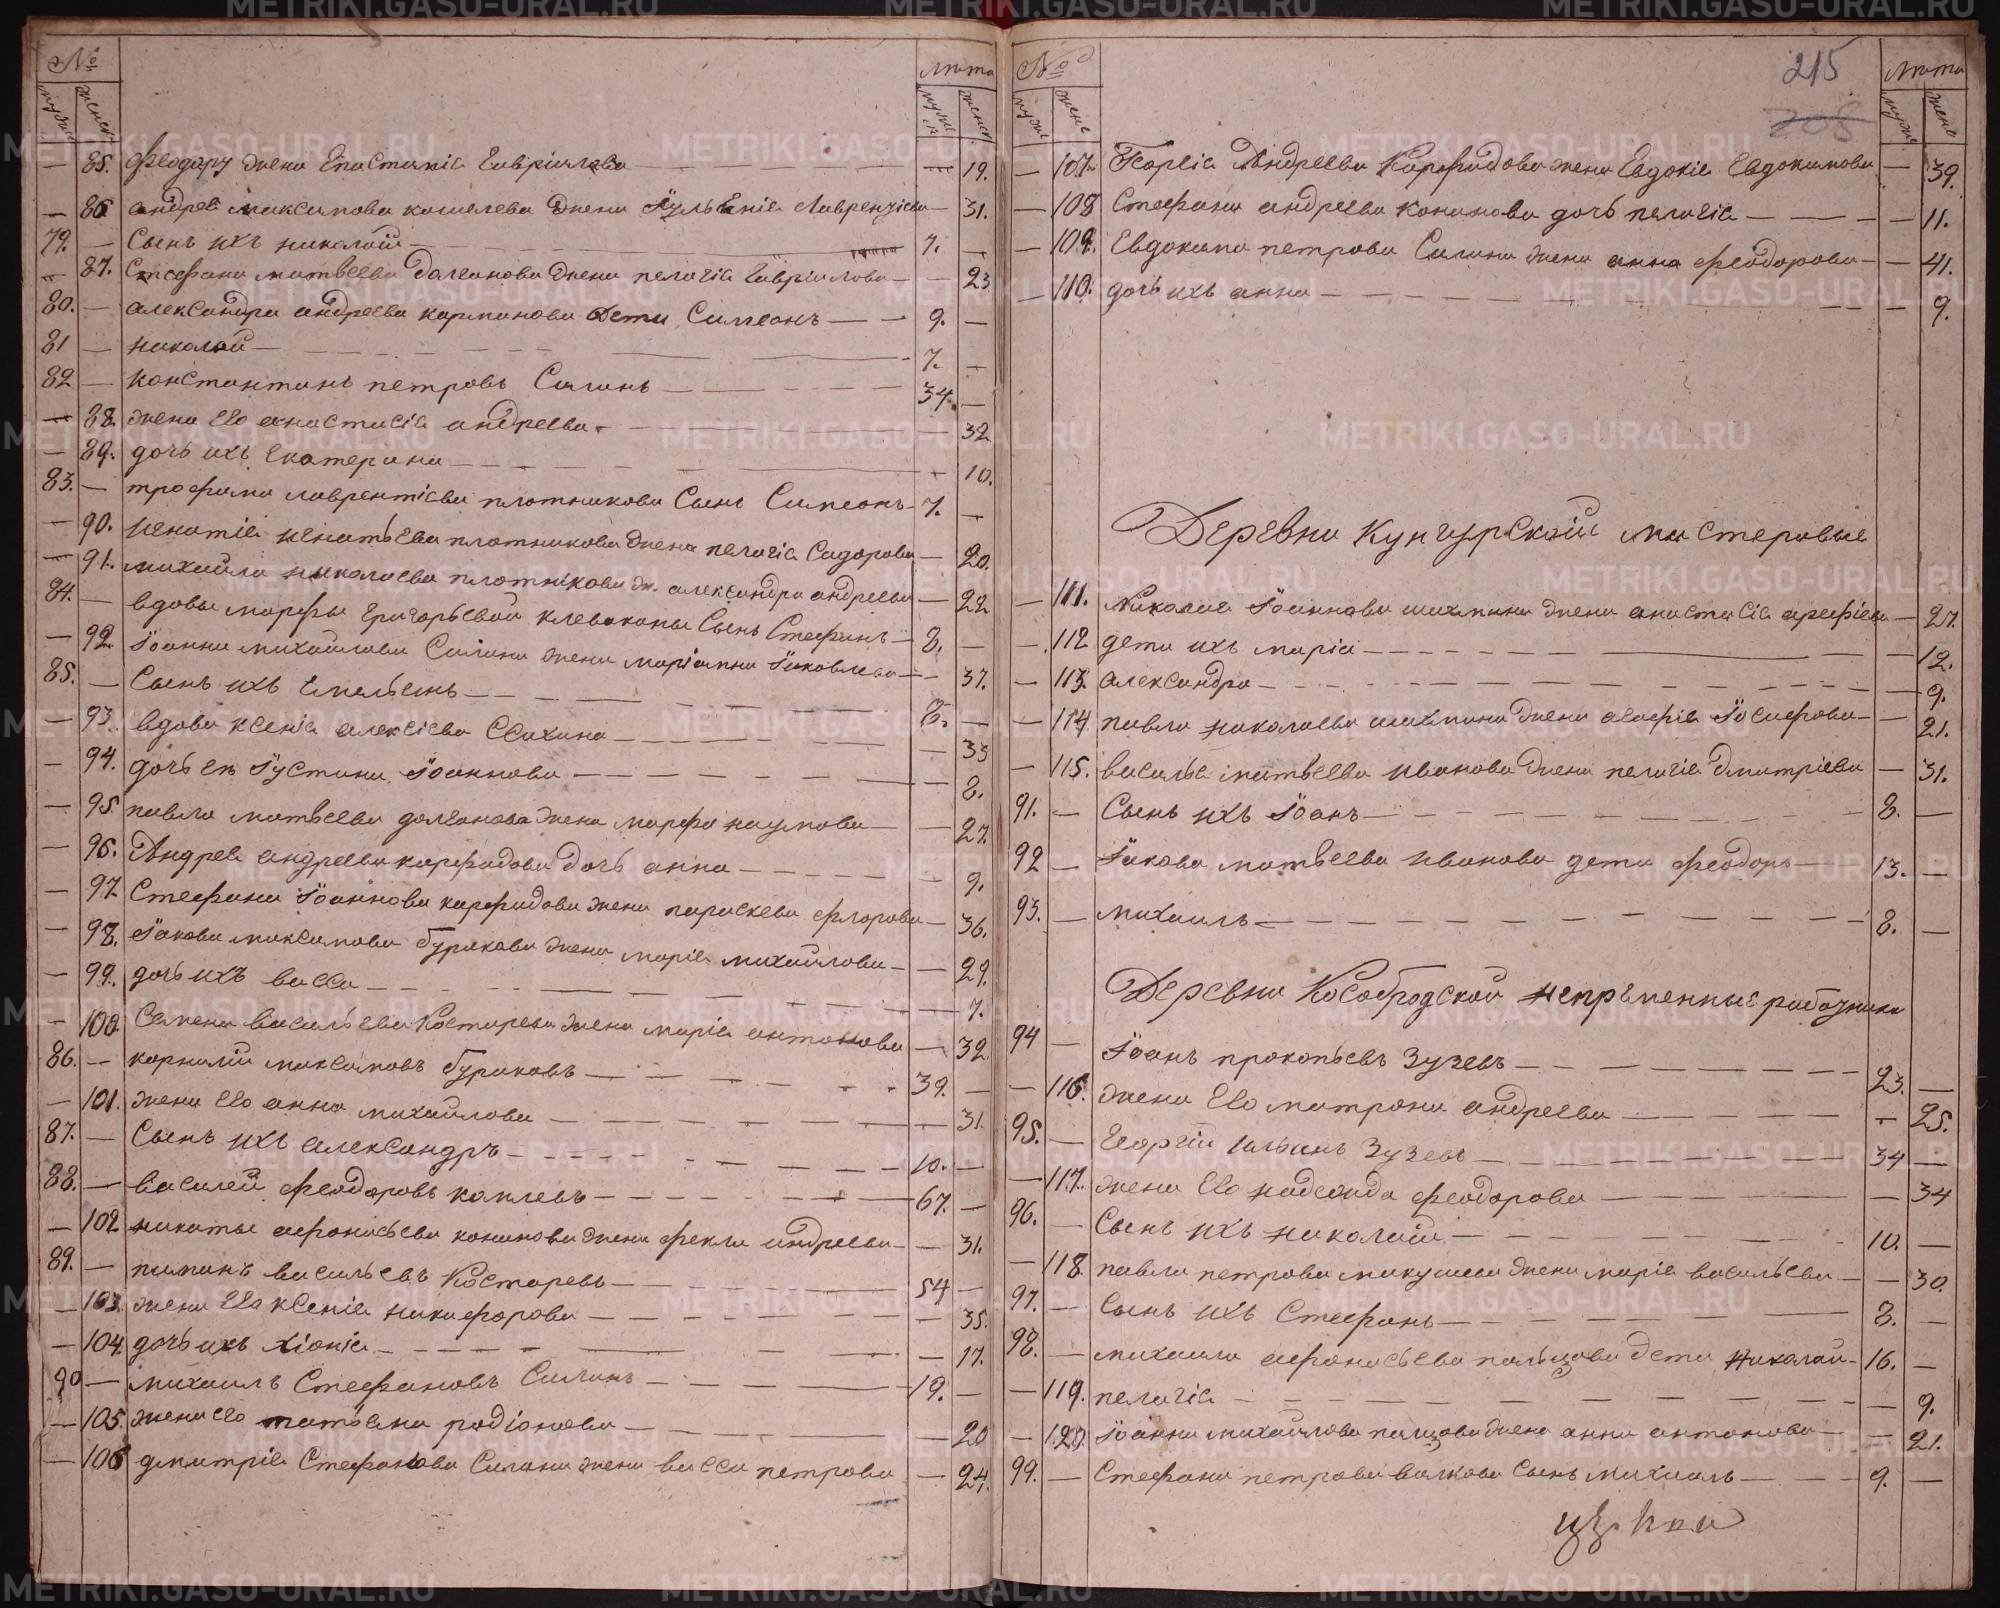 № лѣта
мужск женск мужск женск
— 85. Феодору жена Епистимiа Гаврiилова — 19.
— 86 андреа максимова кошелева жена Iульянiа Лаврентiева — 31.
79. — Сынъ ихъ николай — 7. —
— 87. Стефана матвѣева Долганова жена пелагiа Гаврiилова — 23
80. — александра андреева карманова Дети Симеонъ — 9. —
81 — николай — 7. —
82 — константинъ петровъ Силинъ — 34. —
— 88. жена Его анастасiа андреева — 32
— 89. дочь ихъ Екатерина — 10.
83. — трофима лаврентiева плотникова Сынъ Симеонъ — 7. —
— 90. игнатiа игнатьева плотникова жена пелагiа Сидорова — 20.
— 91. михаила николаева плотникова ж. александра андреева — 22
84. — вдовы марфы григорьевой клевакины Сынъ Стефанъ — 8. —
— 92. Iоанна михайлова Силина жена марiамна Iаковлева — 37.
85. — Сынъ ихъ Емельянъ — 8. —
— 93. вдова ксенiа алексiева — 33
— 94. дочь ея Iустина Iоаннова — 8.
— 95 павла матвѣева долганова жена марфа наумова — 27.
— 96. Андреа андреева карфидова Дочь анна — 9.
— 97 Стефана Iоаннова карфидова жена параскева флорова — 36.
— 98. Iакова максимова буракова жена марiа михайлова — 29.
— 99. дочь ихъ васса — 7.
— 100. Семена васильева Костарева жена марiа антонова — 32.
86. — корнилiй максимовъ бураковъ — 39. —
— 101. жена Его анна михайлова — 31.
87. — Сынъ ихъ александръ — 10. —
88. — василей феодоровъ каплевъ — 67. —
— 102 никиты афонасьева конинова жена фекла андреева — 31.
89. — пиманъ васильевъ Костаревъ — 54 —
— 103. жена Его ксенiа никифорова — 35.
— 104. дочь ихъ хiонiа — 17.
90 — михаилъ Стефановъ Силинъ — 19. —
— 105. жена его татьяна родiонова — 20
— 106 дмитрiа Стефанова Силина жена васса петрова — 24.
№ 215 лѣта
208
муж жен муж жен
— 107. Георгiа Андреева Карфидова жена Евдокiа Евдокимова — 39.
— 108 Стефана андреева конинова дочь пелагiа — 11.
— 109. Евдокима петрова Силина жена анна феодорова — 41.
— 110. дочь ихъ анна — 9.
Деревни Кунгурской мастеровые
— 111. Николаа Iоаннова шахмина жена анастасiа арефiева — 27.
— 112 дети ихъ марiа — 12.
— 113. александра — 9.
— 114 павла николаева шахмина жена агафiа Iосифова — 21.
— 115. василья матвѣева иванова жена пелагiа Дмитрiева — 31.
91. — Сынъ ихъ Iоанъ — 8. —
92 — Iакова матвѣева иванова дети феодоръ — 13. —
93. — михаилъ — 8. —
Деревни Кособродской непрѣменные работники
94 — Iоанъ прокопьевъ Зузевъ — 23. —
— 116. жена Его матрона андреева — 25.
95. — Георгiй ильинъ Зузевъ — 34 —
— 117. жена Его надежда феодорова — 34
96. — Сынъ ихъ николай — 10. —
— 118 павла петрова макушева жена марiа васильева — 30.
97. — Сынъ ихъ Стефанъ — 8. —
98. — михаила афонасьева пальцова дети николай — 16. —
— 119. пелагiа — 9.
— 120. Iоанна михайлова пальцова жена анна антонова — 21.
99. — Стефана петрова валкова Сынъ михаилъ — 9. —